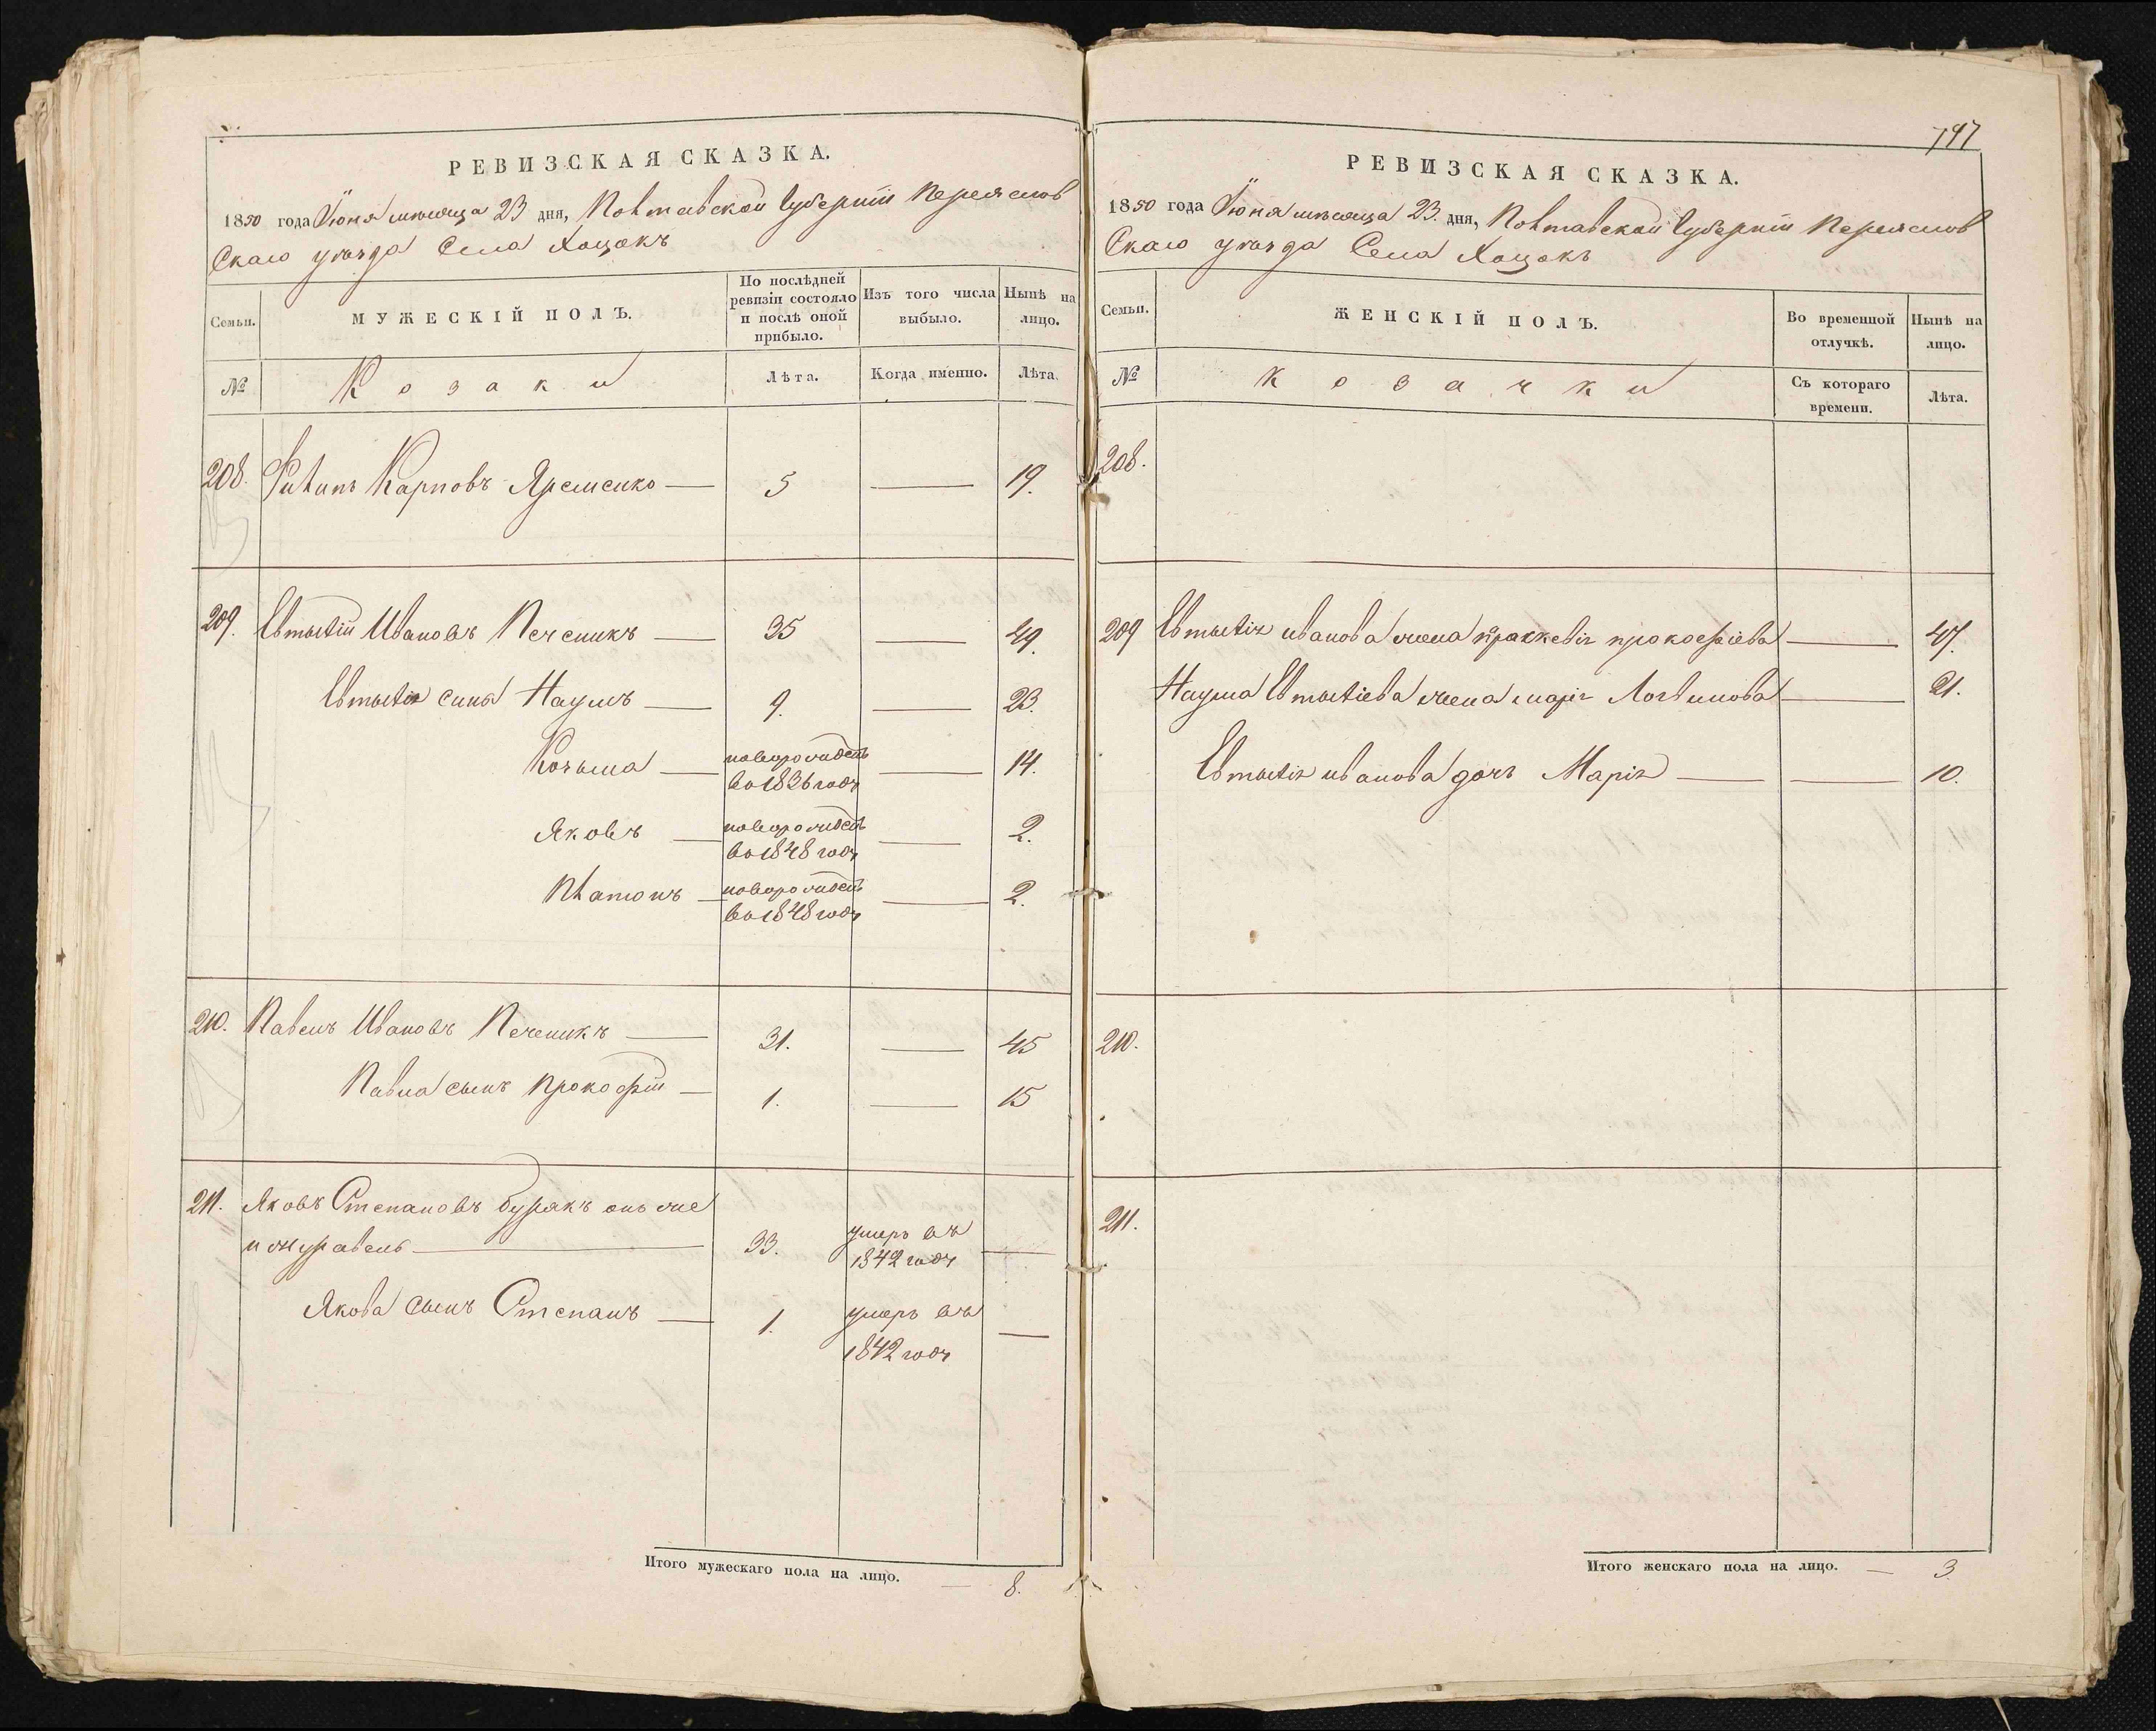 РЕВИЗСКАЯ СКАЗКА.
1850 года Іюня мѣсяца 23 дня, Полтавской Губерніи Переяслов
Скаго уѣзда Села Хоцокъ
Семьи.
МУЖЕСКІЙ ПОЛЪ.
По послѣдней ревизіи состояло и послѣ оной прибыло.
Изъ того числа выбыло.
Нынѣ на лицо.
№
Козаки
Лѣта.
Когда именно.
Лѣта.
208. Филипъ Карповъ Яременко — 5 — 19.
209. Евтыхій Ивановъ Печеникъ — 35 — 49.
Евтыхія сынъ Наумъ — 9. — 23.
Козьма — новорожден во 1836 годѣ — 14.
Яковъ — новорожден во 1848 годѣ — 2.
Платонъ — новорожден во 1848 годѣ — 2.
210. Павелъ Ивановъ Печеникъ — 31. — 45
Павла сынъ Прокофій — 1. — 15
211. Яковъ Степановъ Бурякъ онъ же
и журавель — 33. умеръ въ 1842 годѣ —
Якова сынъ Степанъ — 1. умеръ въ 1842 годѣ —
Итого мужескаго пола на лицо. — 8.
197
РЕВИЗСКАЯ СКАЗКА.
1850 года Іюня мѣсяца 23. дня, Полтавской Губерніи Переяслов
Скаго уѣзда Села Хоцокъ
Семьи.
ЖЕНСКІЙ ПОЛЪ.
Во временной отлучкѣ.
Нынѣ на лицо.
№
козачки
Съ котораго времени.
Лѣта.
208.
209 Евтыхія иванова жена прокофіева — 47.
Наума Евтыхіева жена марія Логвинова — 21.
Евтыхія иванова дочь Марія — — 10.
210.
211.
Итого женскаго пола на лицо. — 3